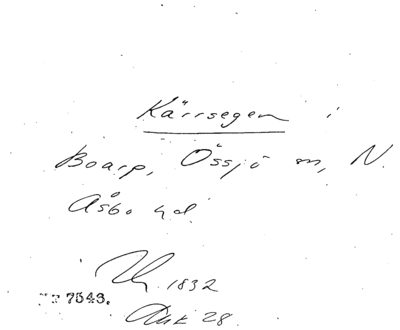 Kärrsegen i
Boarp, Össjö sn, N.
Åsbo hd.
1832
7543.
Ask 28